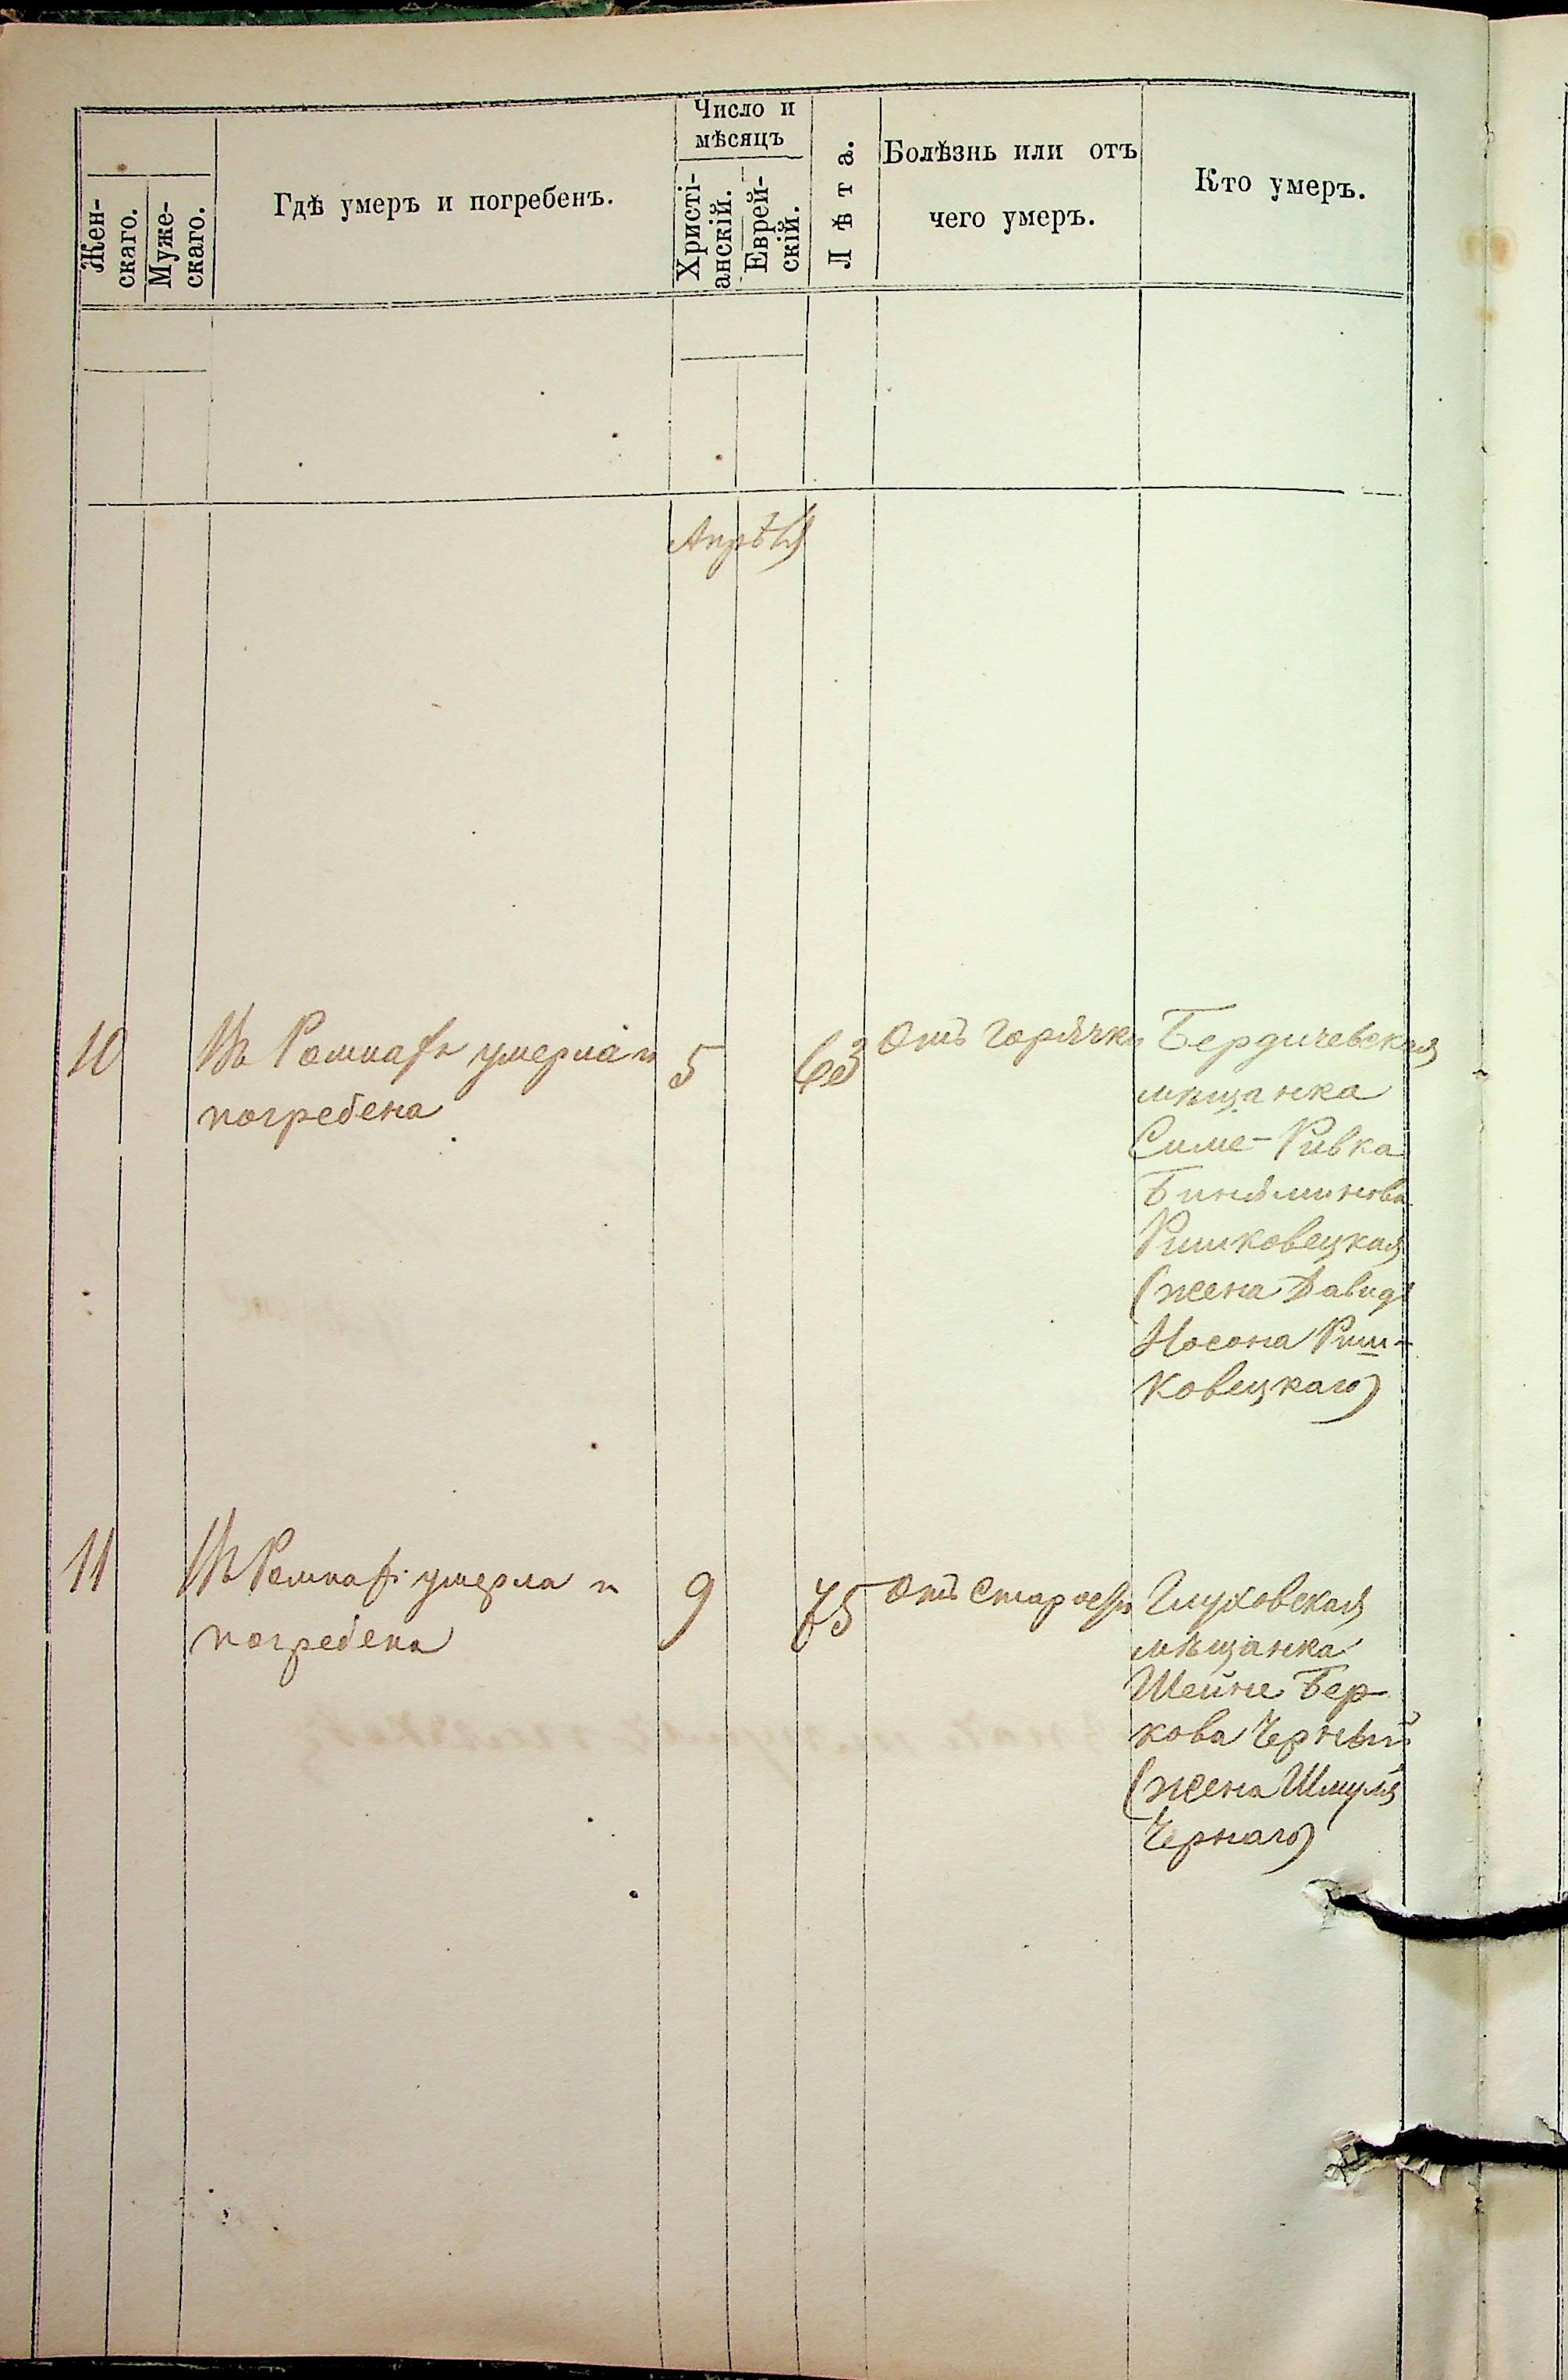 Жен-
скаго.
Муже-
скаго.
Гдѣ умеръ и погребенъ.
Число и
мѣсяцъ
Христі-
анскій.
Еврей-
скій.
Лѣта.
Болѣзнь или отъ
чего умеръ.
Кто умеръ.
Апрѣля
10 Въ Ромнахъ умерла и 5 63 Отъ горячки Бердичевская
погребена мѣщанка
Симе-Ривка
Биняминова
Ришковецкая
(жена Давида
Носона Риш-
ковецкаго)
11 Въ Ромнахъ умерла и 9 75 Отъ старости Глуховская
погребена мѣщанка
Шейне Бер-
кова Черный
(жена Шмуля
Чернаго)